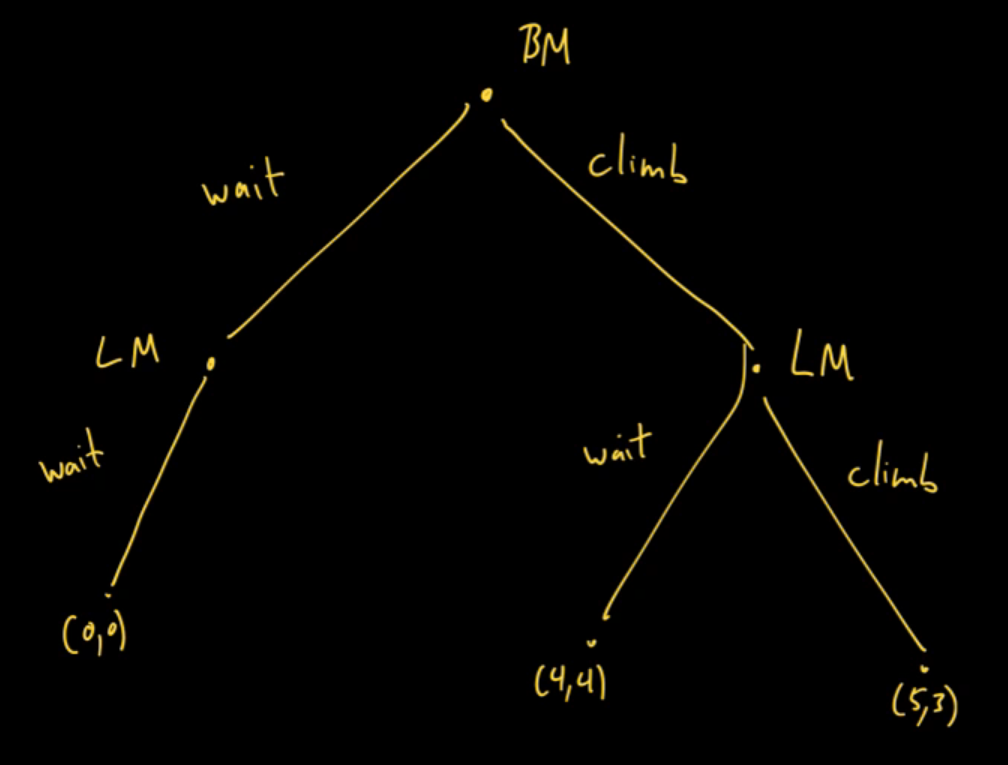 BM
wait
climb
LM
LM
wait
wait
climb
(0,0)
(4,4)
(5,3)